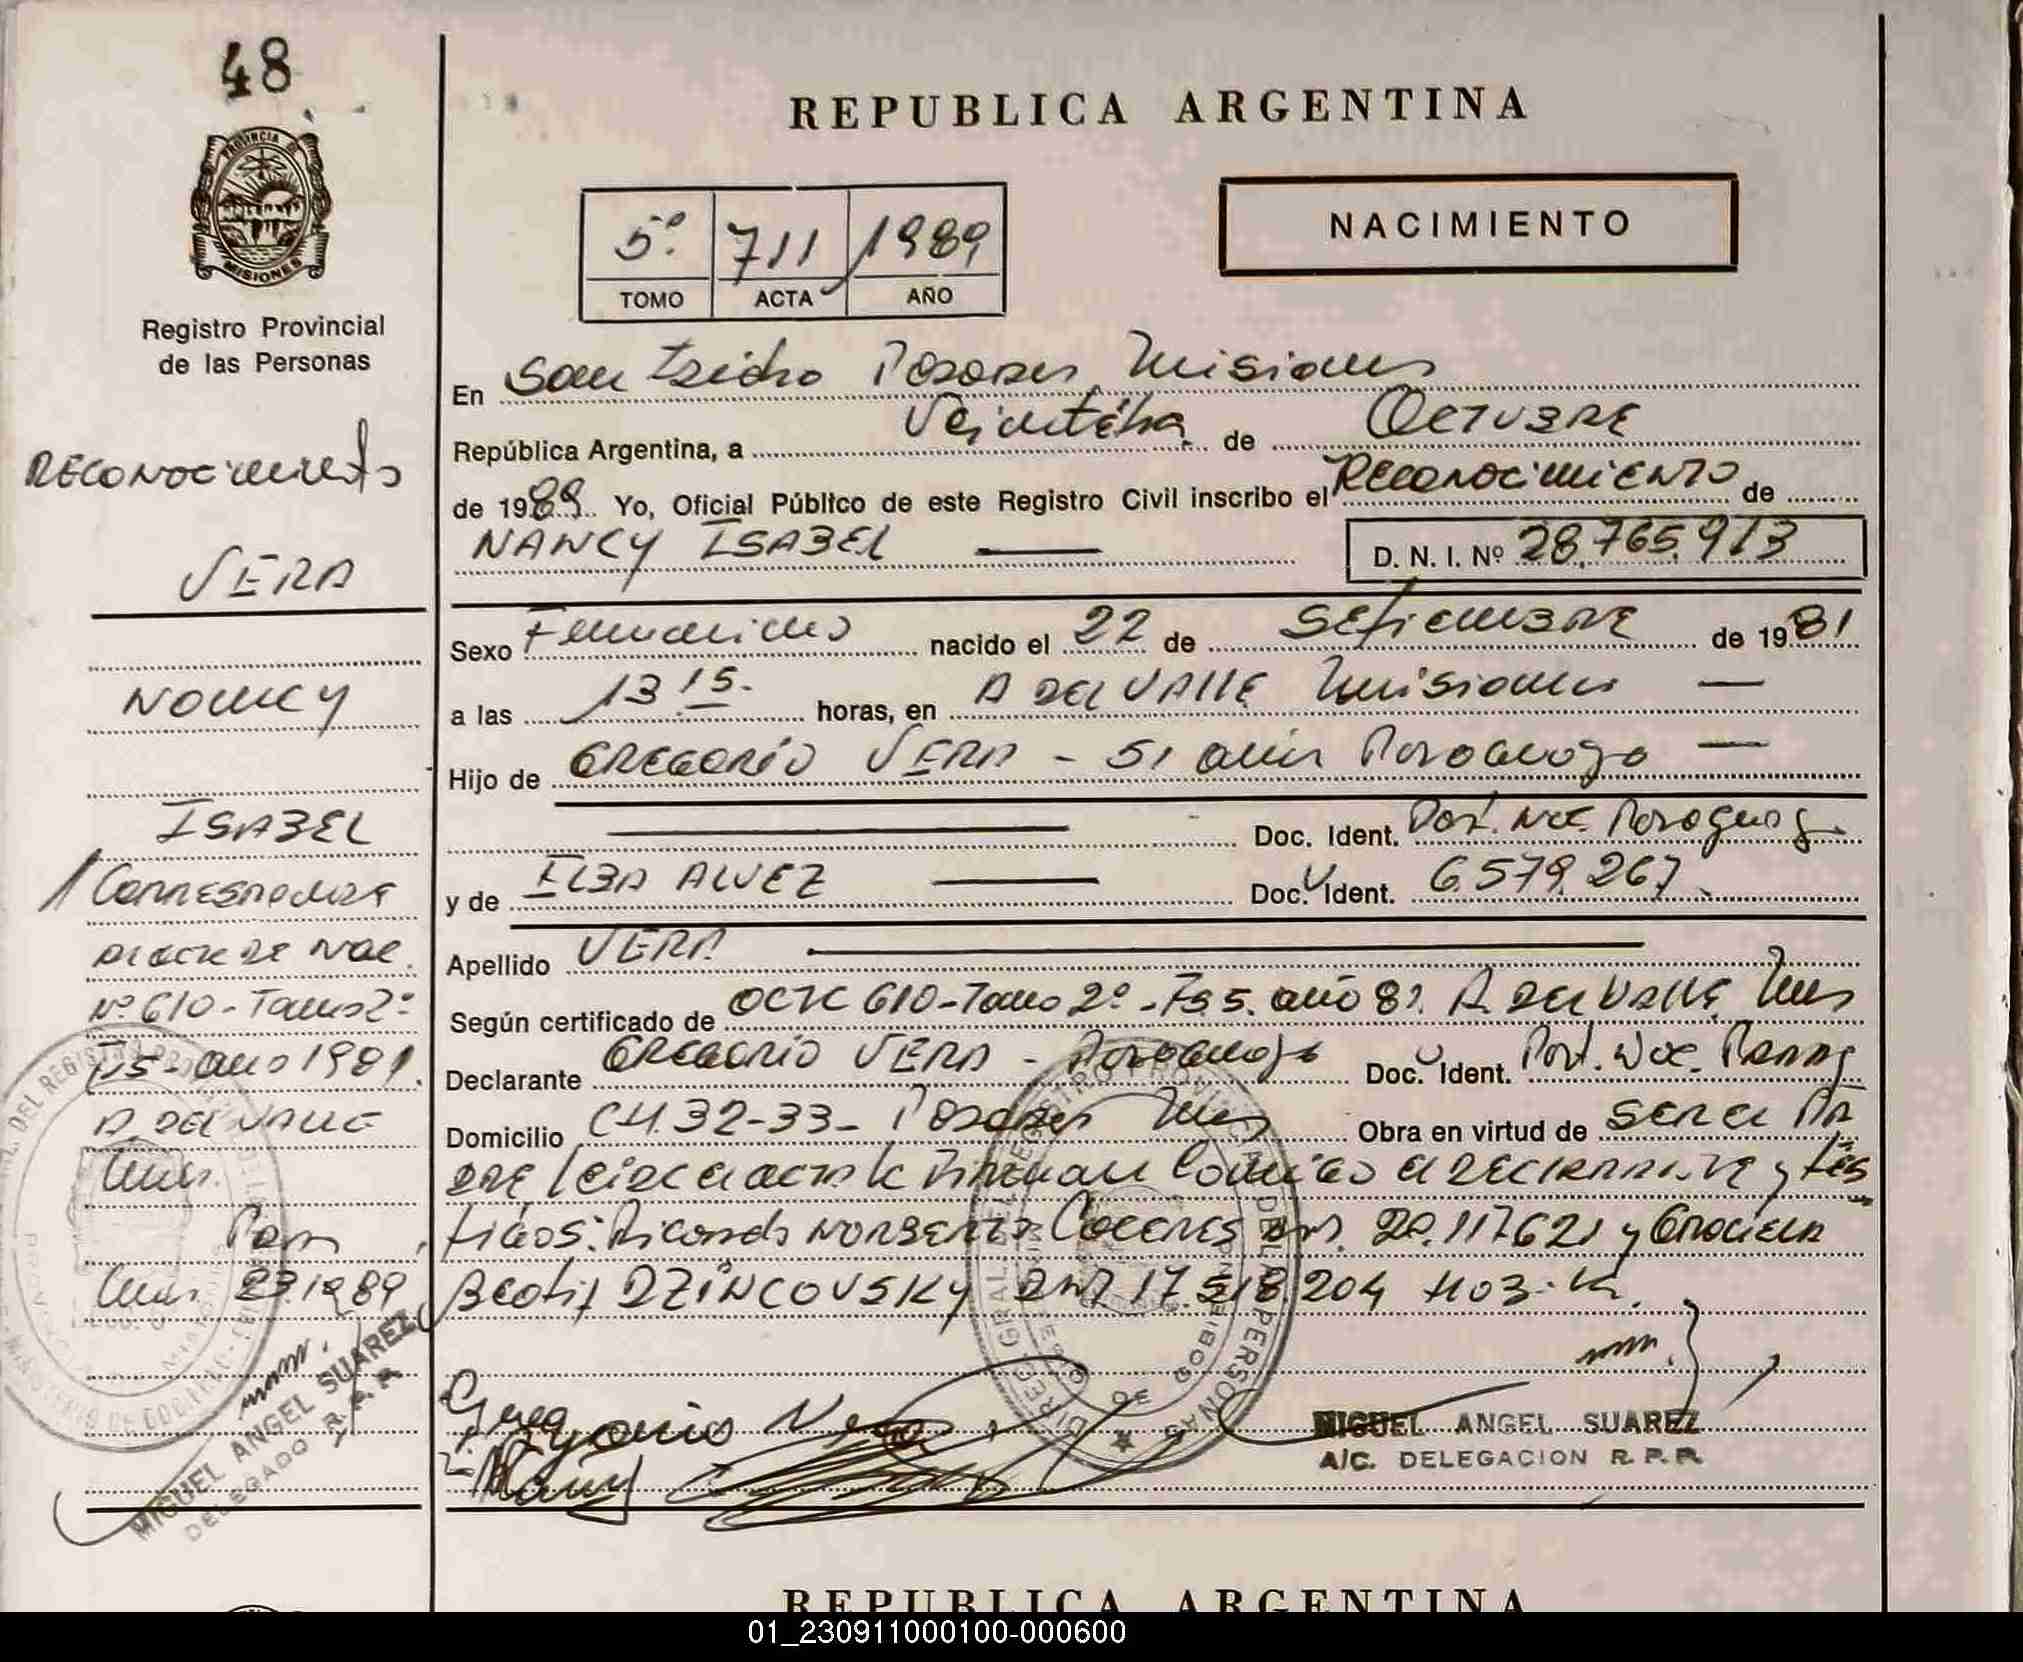 48
REPUBLICA ARGENTINA
PROVINCIA DE
MISIONES
Registro Provincial
de las Personas
NACIMIENTO
5º 711 1989
TOMO ACTA AÑO
RECONOCIMIENTO
VERA
NANCY
ISABEL
CORRESPONDE
Nº 610 - Tomo 2º
año 1981
A. DEL VALLE
Mnes.
Pos
MIGUEL ANGEL SUAREZ
DELEGADO R.P.P.
En San Isidro Posadas Misiones
República Argentina, a de OCTUBRE
de 1989 Yo, Oficial Público de este Registro Civil inscribo el RECONOCIMIENTO de
NANCY ISABEL D. N. I. Nº 28.765.913
Sexo Femenino nacido el 22 de SETIEMBRE de 1981
a las 13 15. horas, en A DEL VALLE Misiones
Hijo de GREGORIO VERA - 51 años Paraguayo
Doc. Ident. Part. Nac. Paraguay
y de ELBA ALVEZ Doc. Ident. 6.579.267
Apellido VERA
Según certificado de ACTA 610 - Tomo 2º - año 81. A DEL VALLE Mnes
Declarante GREGORIO VERA - Paraguayo Doc. Ident. Part. Nac. Parag
Domicilio CH. 32-33 - Posadas Mnes Obra en virtud de SER EL PA
DRE leída el acta la Firman Conmigo el DECLARANTE y tes
tigos: Ricardo NORBERTO CACERES DNI. 20.117621 y GRACIELA
Beatriz DZINCOVSKY DNI 17.518 204
Gregorio Vera
MIGUEL ANGEL SUAREZ
A/C. DELEGACION R. P. P.
REPUBLICA ARGENTINA
01_230911000100-000600